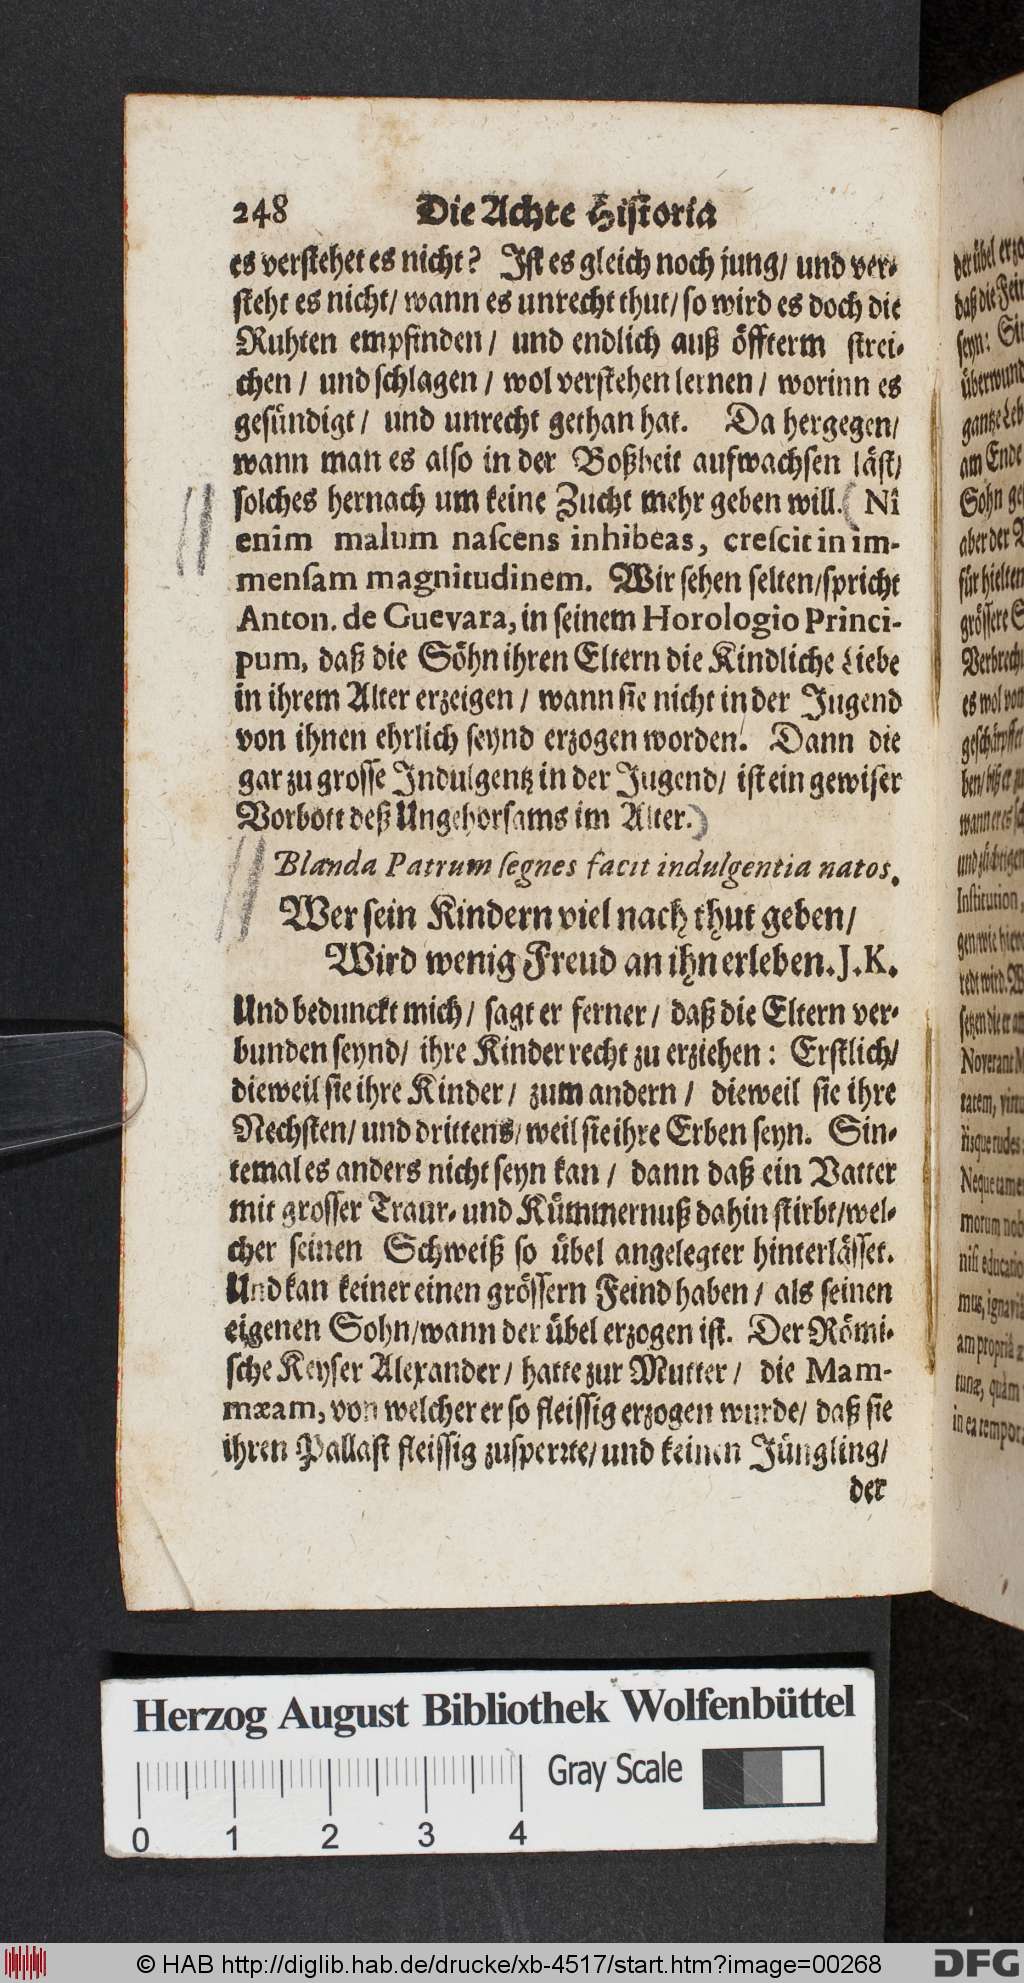 248 Die Achte Historia
es verstehet es nicht? Ist es gleich noch jung/ und ver-
steht es nicht/ wann es unrecht thut/ so wird es doch die
Ruhten empfinden/ und endlich auß öffterm strei-
chen/ und schlagen/ wol verstehen lernen/ worinn es
gesündigt/ und unrecht gethan hat. Da hergegen/
wann man es also in der Boßheit aufwachsen läst/
solches hernach um keine Zucht mehr geben will. (Ni
enim malum naſcens inhibeas, creſcit in im-
menſam magnitudinem. Wir sehen selten/ spricht
Anton. de Guevara, in seinem Horologio Princi-
pum, daß die Söhn ihren Eltern die Kindliche Liebe
in ihrem Alter erzeigen/ wann sie nicht in der Jugend
von ihnen ehrlich seynd erzogen worden. Dann die
gar zu grosse Indulgentz in der Jugend/ ist ein gewiser
Vorbott deß Ungehorsams im Alter.)
Blanda Patrum ſegnes facit indulgentia natos.
Wer sein Kindern viel nach thut geben/
Wird wenig Freud an ihn erleben. J. K.
Und bedunckt mich/ sagt er ferner/ daß die Eltern ver-
bunden seynd/ ihre Kinder recht zu erziehen: Erstlich/
dieweil sie ihre Kinder/ zum andern/ dieweil sie ihre
Nechsten/ und drittens/ weil sie ihre Erben seyn. Sin-
temal es anders nicht seyn kan/ dann daß ein Vatter
mit grosser Traur- und Kümmernuß dahin stirbt/ wel-
cher seinen Schweiß so übel angelegter hinterlässet.
Und kan keiner einen grössern Feind haben/ als seinen
eigenen Sohn/ wann der übel erzogen ist. Der Römi-
sche Keyser Alexander/ hatte zur Mutter/ die Mam-
mæam, von welcher er so fleissig erzogen wurde/ daß sie
ihren Pallast fleissig zusperrte/ und keinen Jüngling/
der
der übel
daß die
seyn:
am Ende
Sohn
aber der
für hielten
grössere
es wol
Institution,
redt wird.
Noverant
tatem,
Neque
morum
nisi
mus,
am propriâ
tunæ, quàm
in ea tempor
Herzog August Bibliothek Wolfenbüttel
Gray Scale
0 1 2 3 4
© HAB http://diglib.hab.de/drucke/xb-4517/start.htm?image=00268
DFG